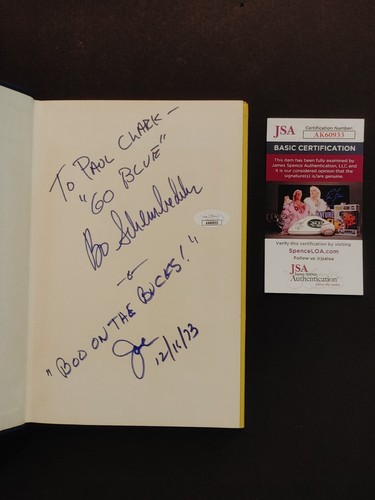 To PAUL CLARK —
"GO BLUE"
Bo Schembechler
"BOO ON THE BUCKS!"
Joe
12/11/73
JSA
Certification Number:
AK60933
BASIC CERTIFICATION
This item has been fully examined by
James Spence Authentication, LLC and
it is our considered opinion that the
signature(s) is/are genuine.
Verify this certification by visiting
SpenceLOA.com
Follow us @jsaloa
JSA
Authentication